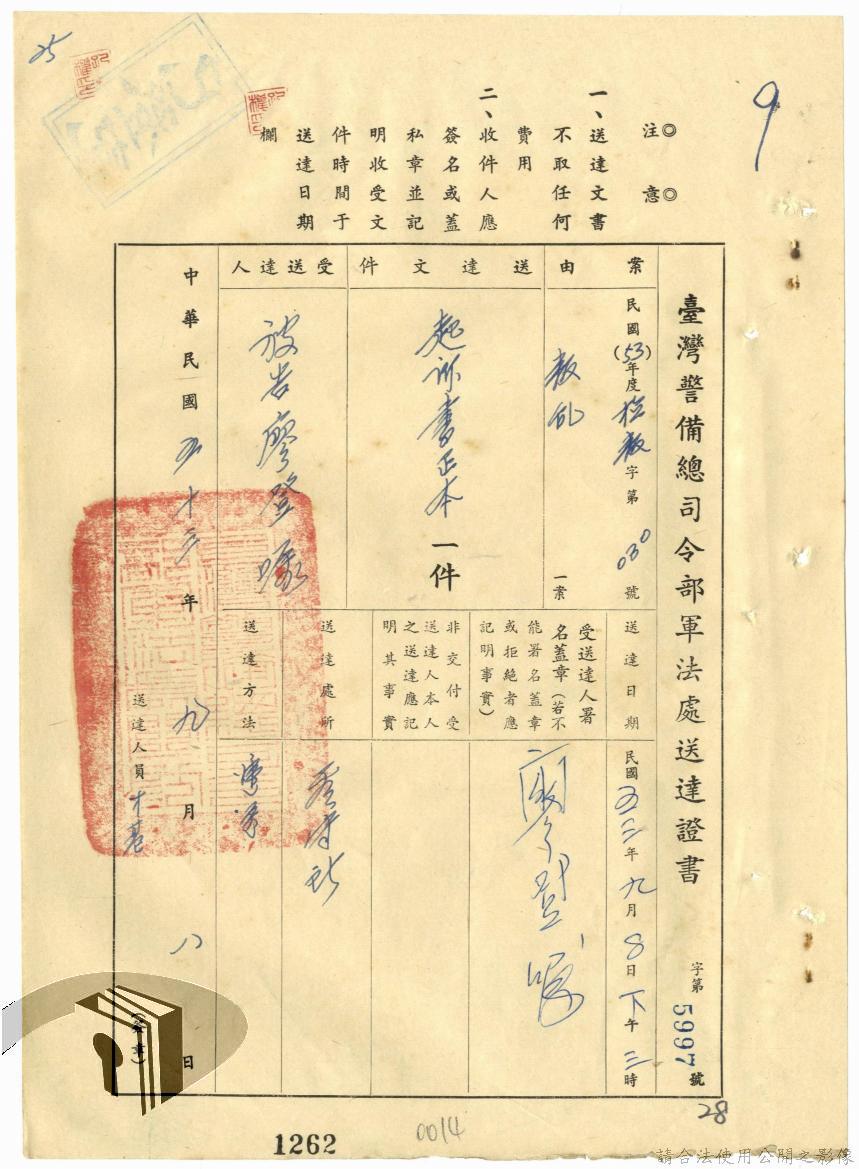 9
◎注意◎
一、送達文書
不取任何
費用
二、收件人應
簽名或蓋
私章並記
明收受文
件時間于
送達日期
欄
臺灣警備總司令部軍法處送達證書
字第5997號
案由
民國(53)年度檢叛字第030號
叛乱
一案
送達文件
起訴書正本一件
受送達人
被告廖登
送達日期
民國五三年九月8日下午三時
受送達人署
名蓋章(若不
能署名蓋章
或拒絕者應
記明事實)
廖登
非交付受
送達人本人
之送達應記
明其事實
送達處所
看守所
送達方法
中華民國五十三年九月八日
送達人員
(簽章)
28
1262
0014
請合法使用公開之影像